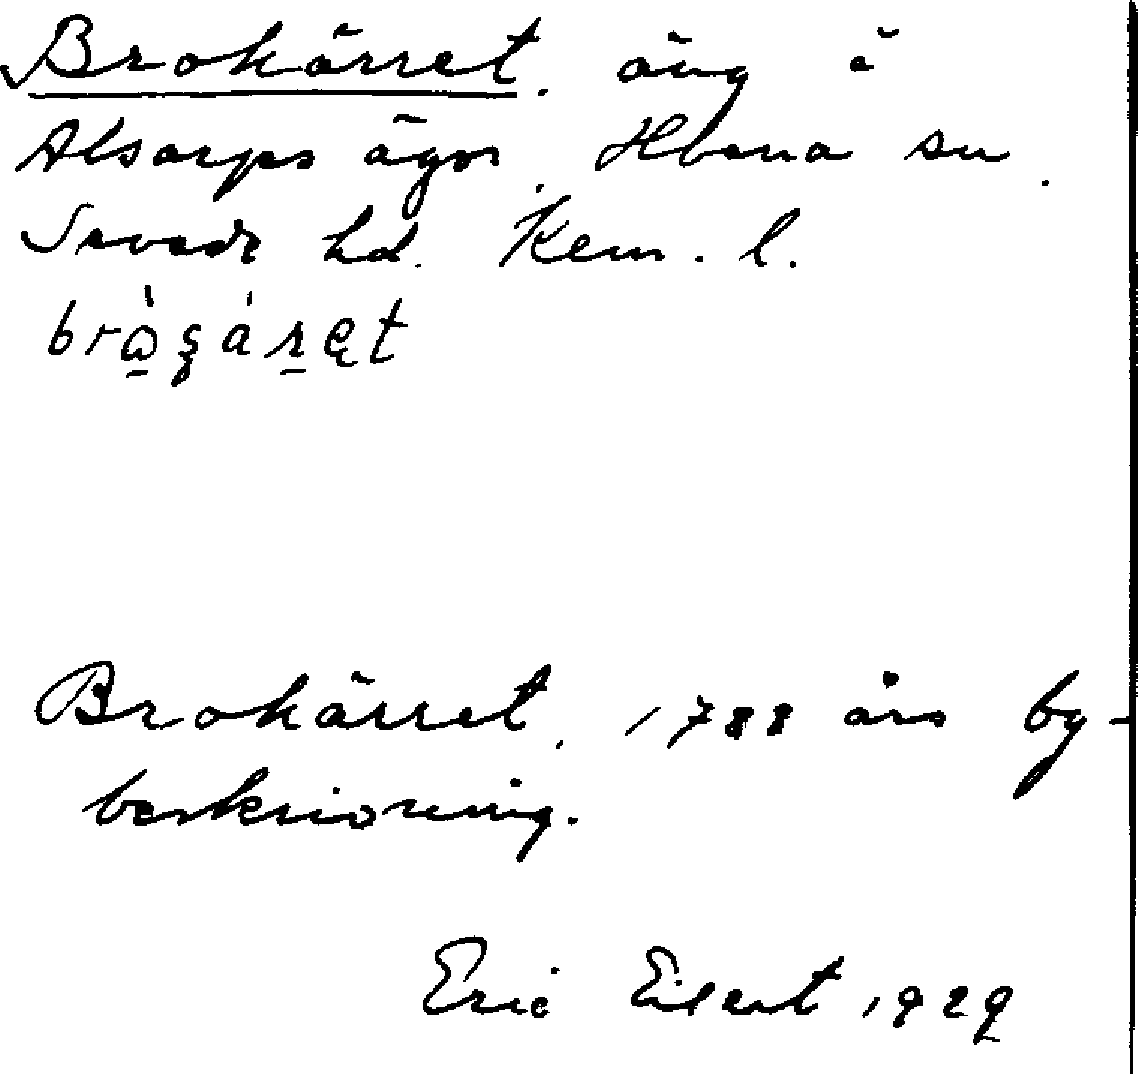 Brokärret. äng å
Alsarps ägor. Hvena sn.
Sevede hd. Kem. l.
Brokärret, 1788 års by-
beskrivning.
Eric Eilert 1929